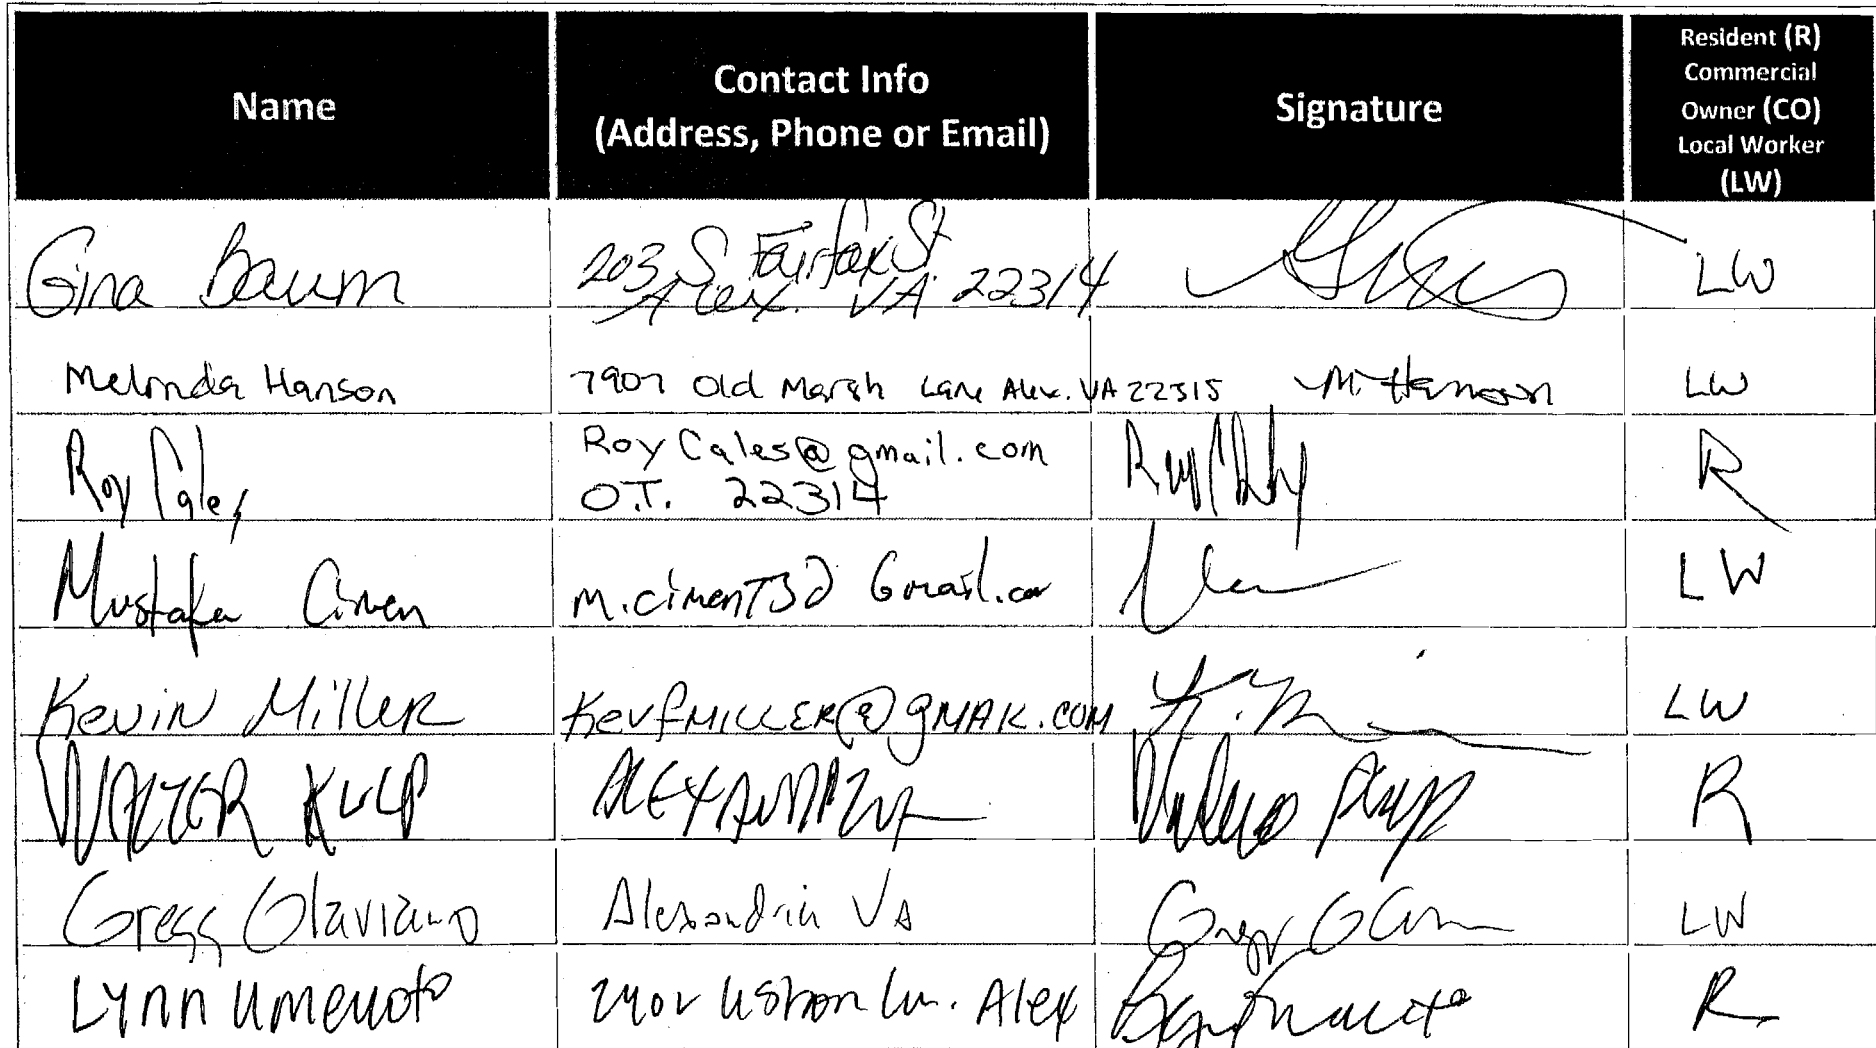 Name
Contact Info
(Address, Phone or Email)
Signature
Resident (R)
Commercial
Owner (CO)
Local Worker
(LW)
Gina Baum
203 S Fairfax St
Alex. VA 22314
LW
Melinda Hanson
7907 Old Marsh Lane Alex. VA 22315
M. Hanson
LW
Roy Cales
RoyCales@gmail.com
O.T. 22314
R
Mustafa Cimen
LW
Kevin Miller
LW
WALTER KULP
R
Gregg
Alexandria VA
LW
Lynn Umemoto
Ln. Alex
R